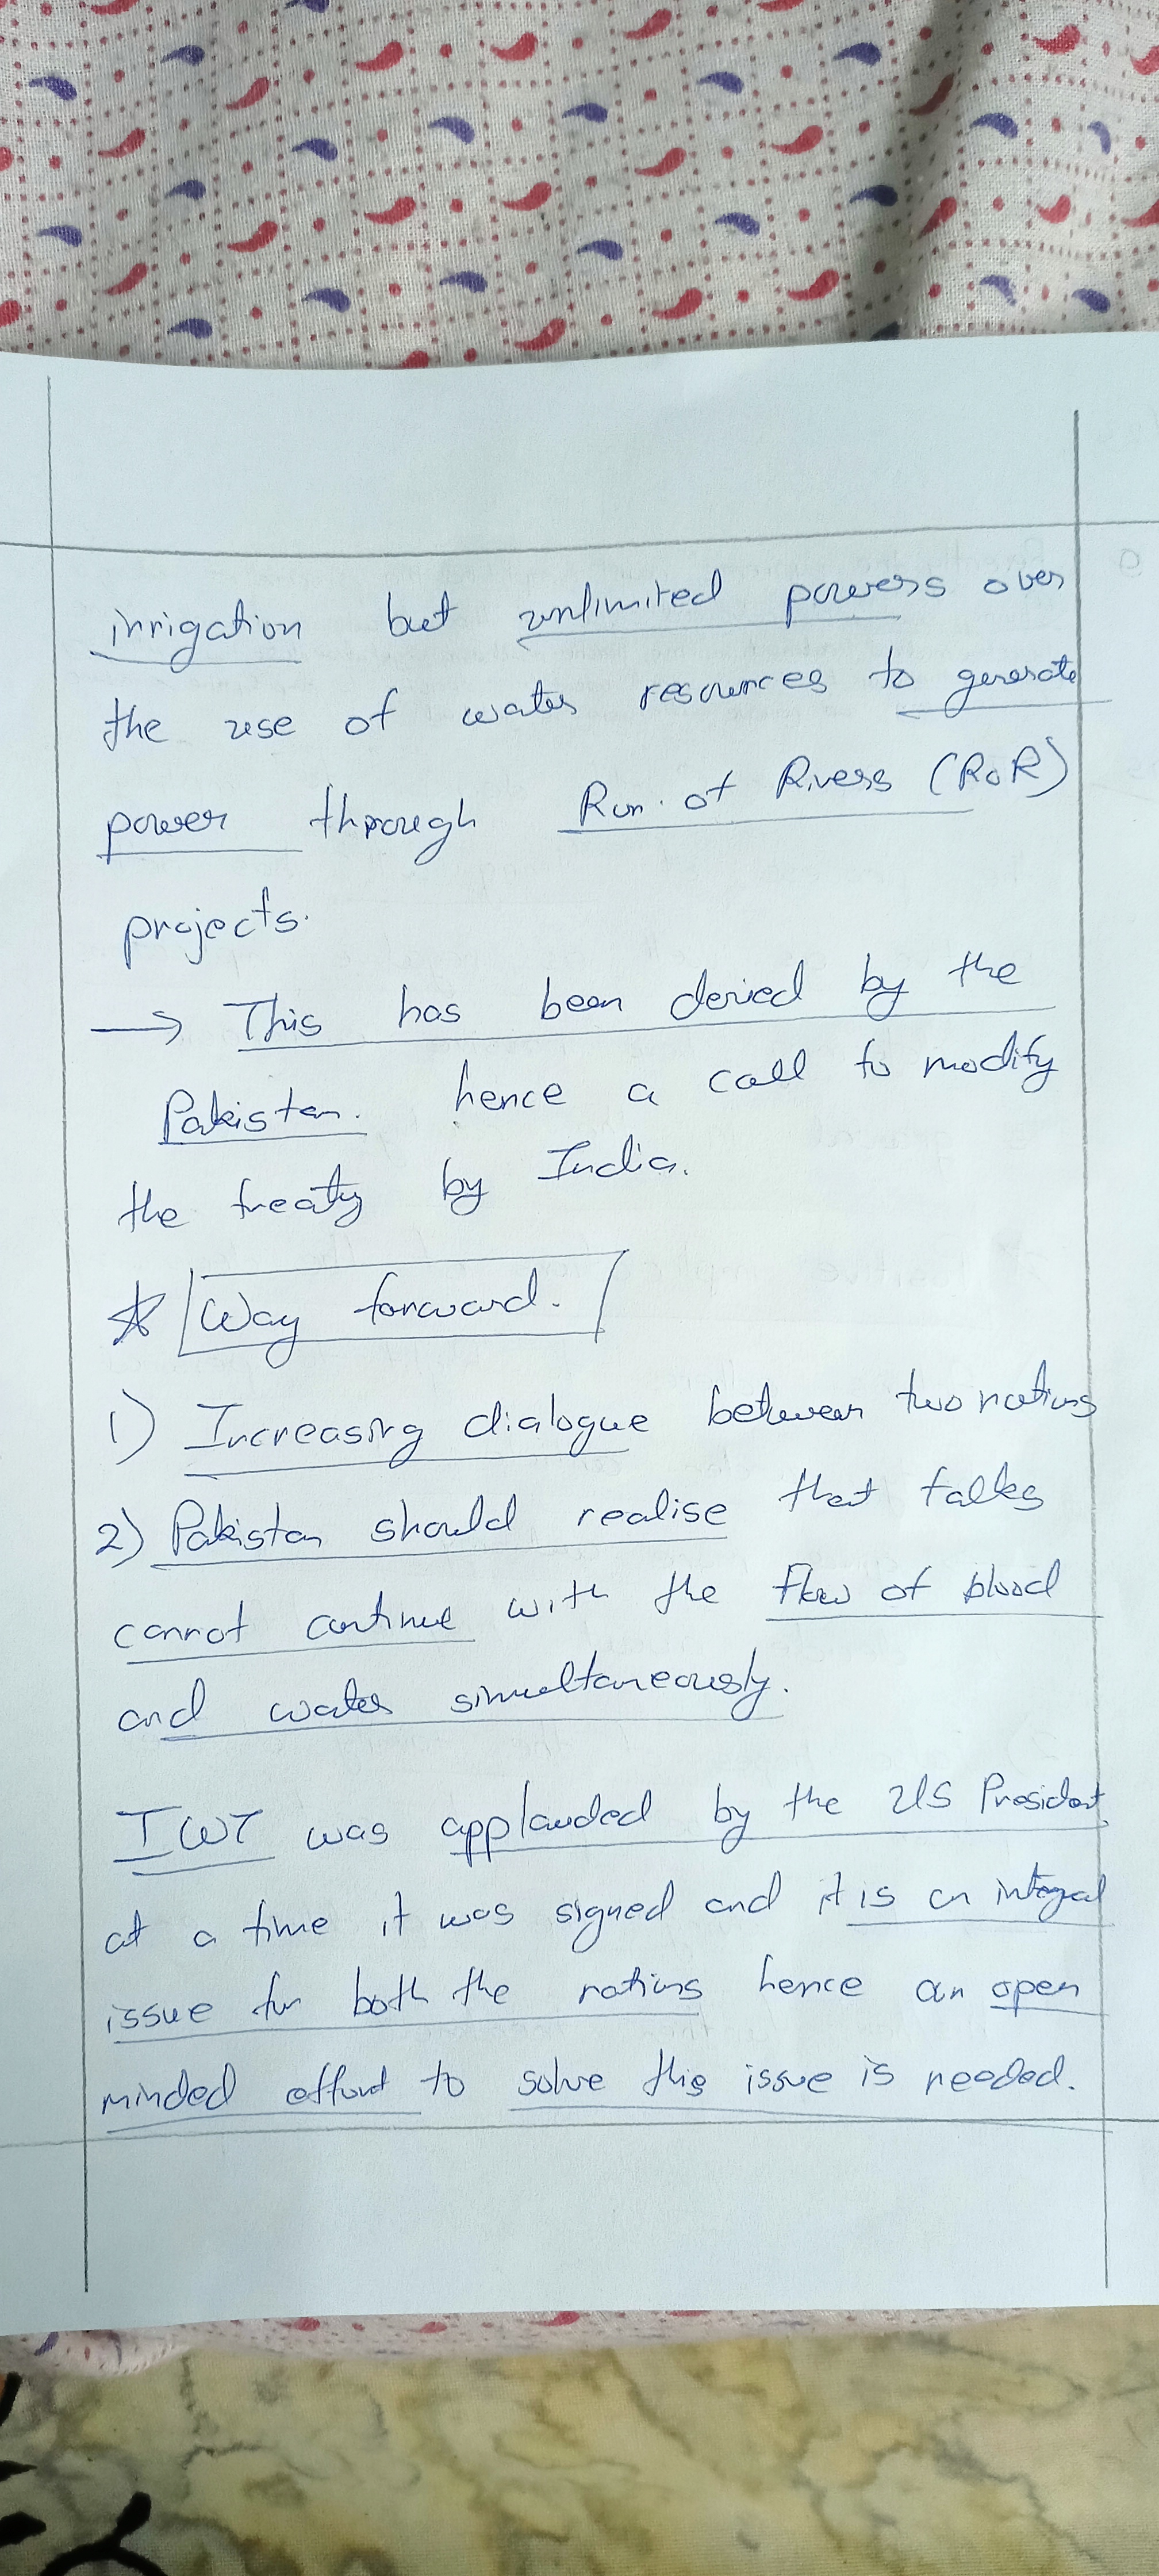 irrigation but unlimited powers over
the use of water resources to generate
power through Run of Rivers (RoR)
projects.
→ This has been denied by the
Pakistan. hence a call to modify
the treaty by India.
☆ Way forward.
1) Increasing dialogue between two nations
2) Pakistan should realise that talks
cannot continue with the flow of blood
and water simultaneously.
IWT was applauded by the US President
at a time it was signed and it is an integral
issue for both the nations hence an open
minded effort to solve this issue is needed.